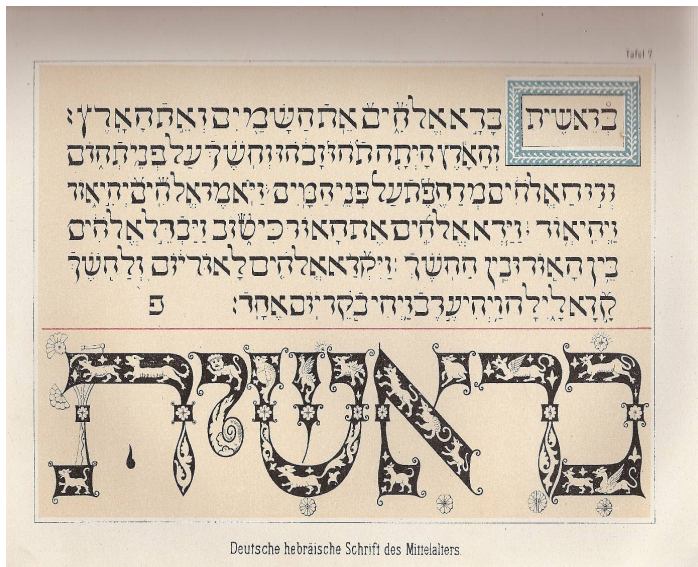 Tafel 7
בראשית ברא אלהים את השמים ואת הארץ׃
והארץ היתה תהו ובהו וחשך על פני תהום
ורוח אלהים מרחפת על פני המים ויאמר אלהים יהי אור
ויהי אור וירא אלהים את האור כי טוב ויבדל אלהים
בין האור ובין החשך ויקרא אלהים לאור יום ולחשך
קרא לילה ויהי ערב ויהי בקר יום אחד׃ פ
בראשית
Deutsche hebräische Schrift des Mittelalters.